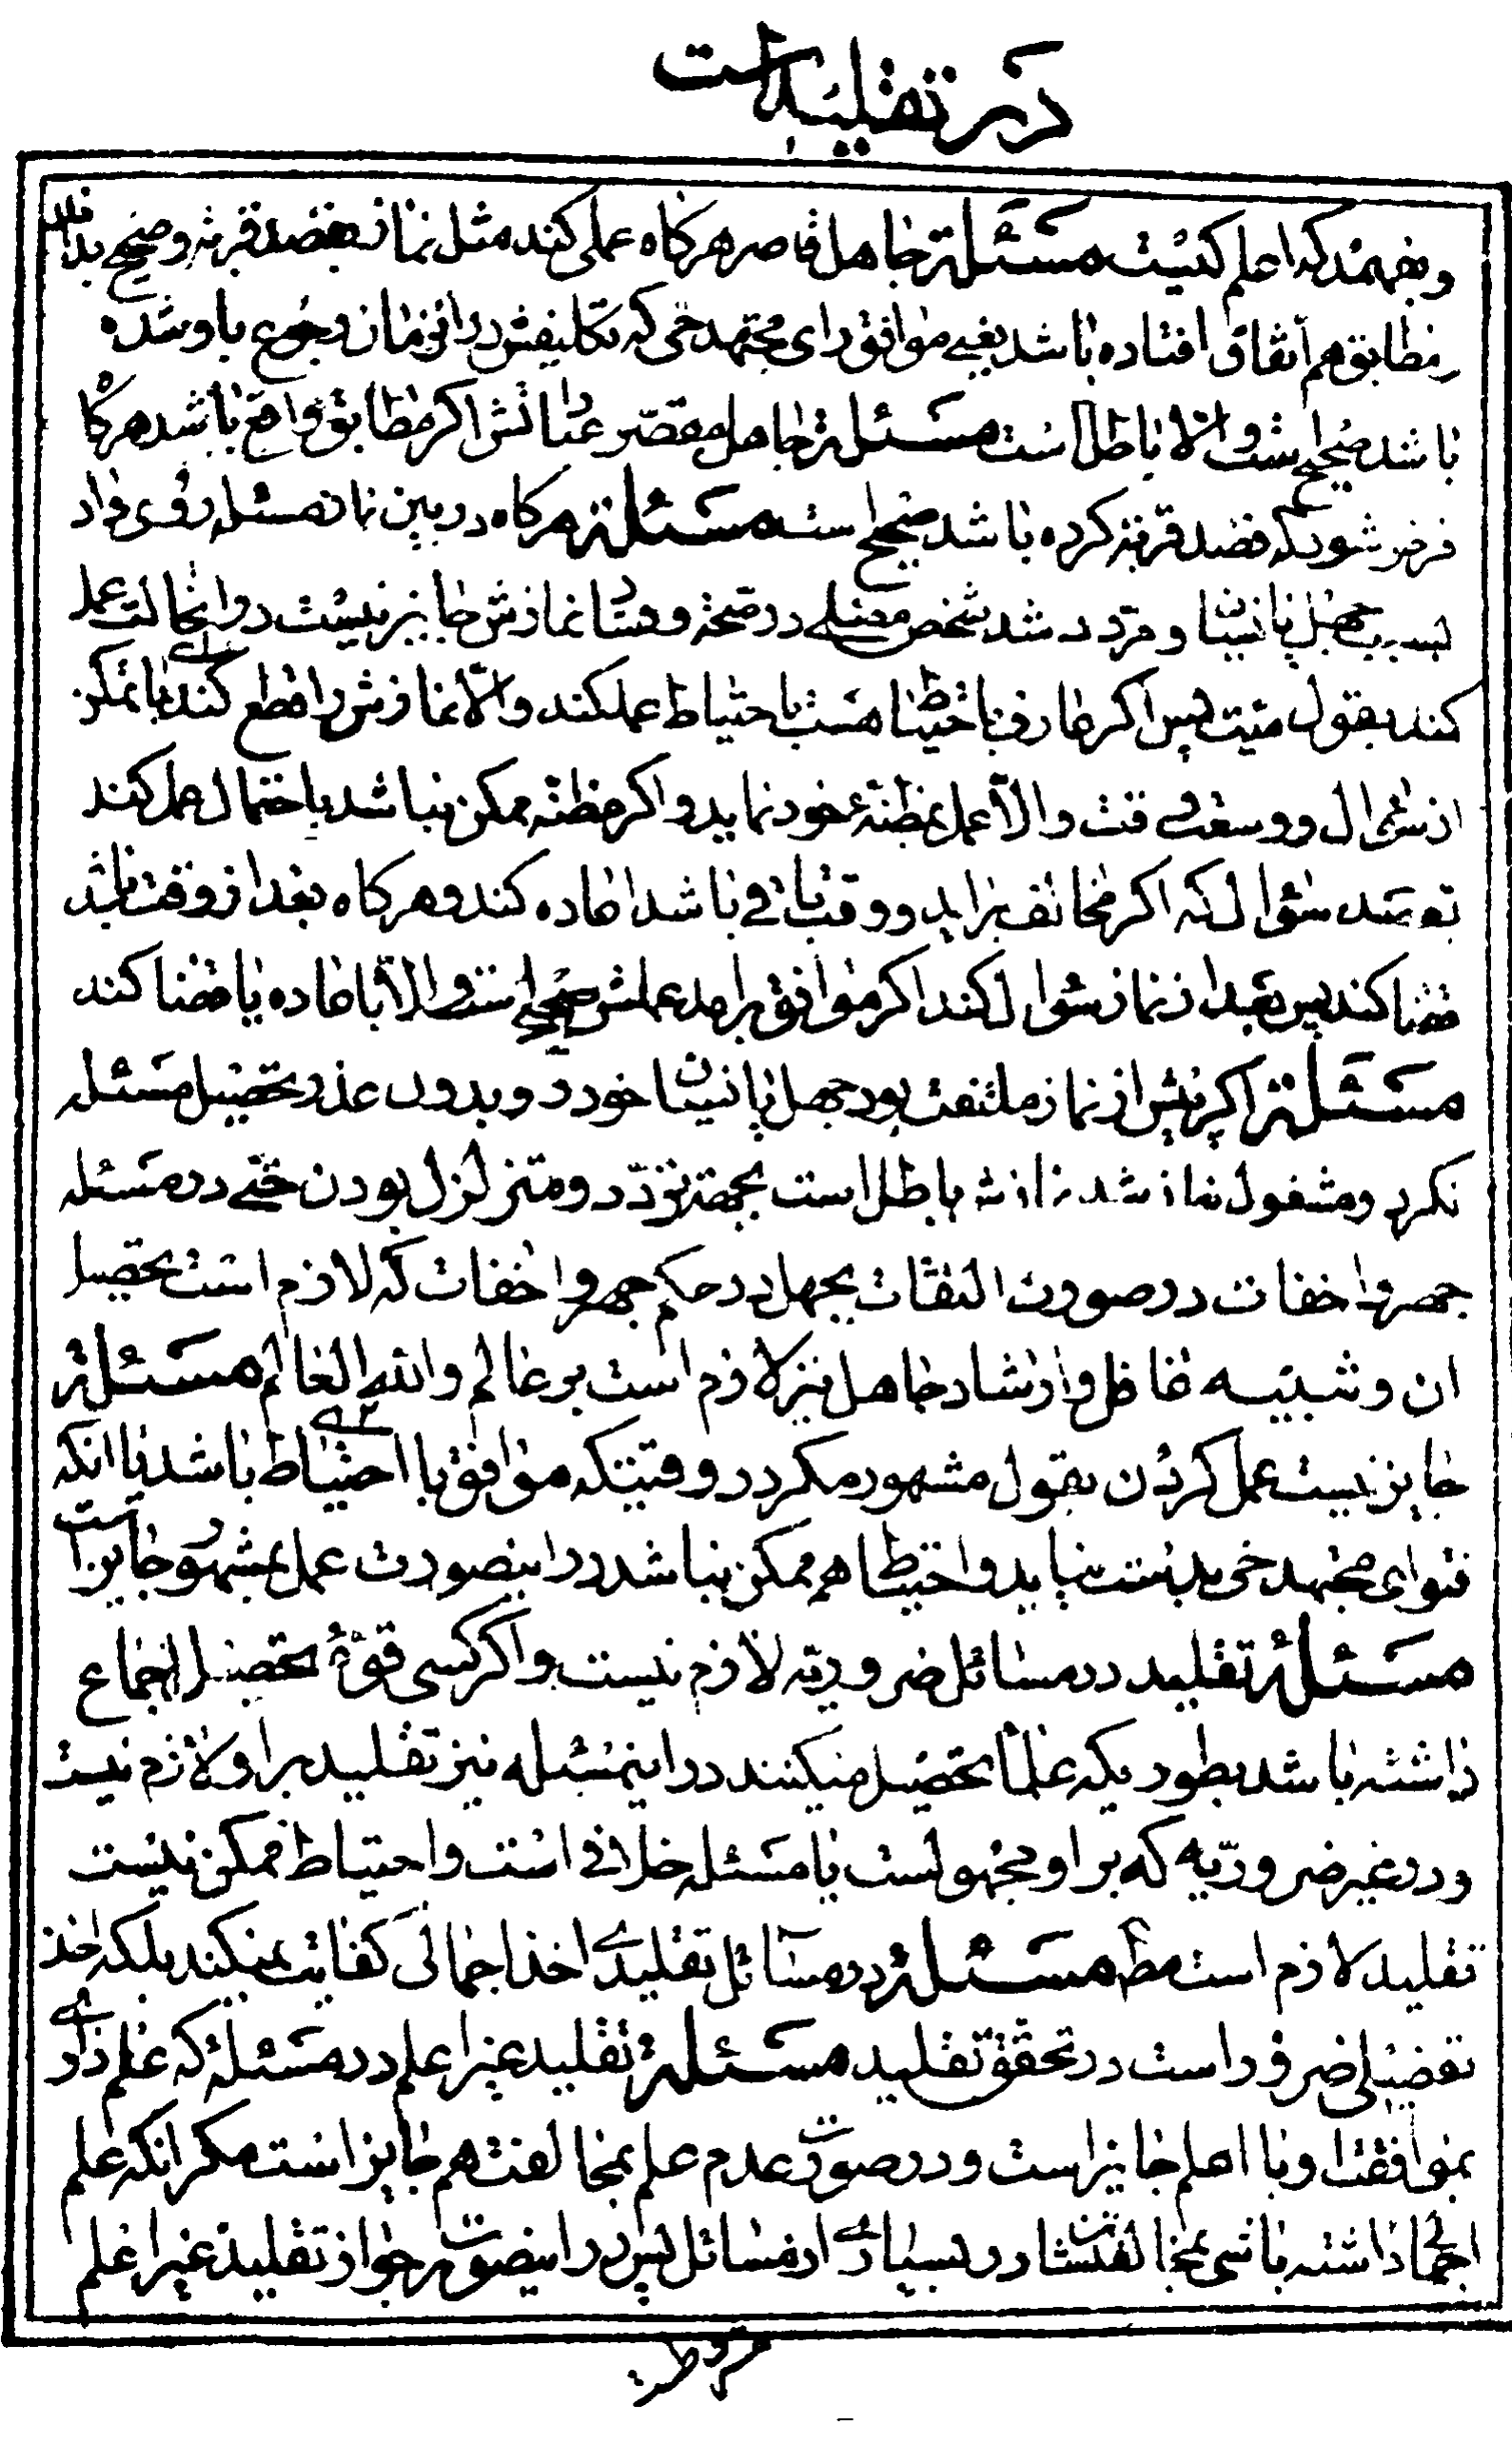 در تقلید است
و بفهمند که اعلم کیست مسئلة جاهل قاصر هرگاه عملی کند مثل نماز بقصد قربة و صحیح بداند
و مطابق هم اتفاق افتاده باشد یعنی موافق رای مجتهد حی که تکلیفش در انزمان رجوع باو شده
باشد صحیح است و الا باطل است مسئلة جاهل مقصر عباداتش اگر مطابق واقع باشد هرگاه
فرض شود که قصد قربة کرده باشد صحیح است مسئلة هرگاه در بین نماز مسئله روی داد
بسبب جهل یا نسیان و مردد شد شخص مصلی در صحة و فساد نمازش جایز نیست در انحالت عمل
کند بقول میت پس اگر عارف باحتیاط هست باحتیاط عمل کند والا نمازش را قطع کند با تمکن
از سئوال و وسعت وقت والا عمل بمظنهٔ خود نماید و اگر مظنه ممکن نباشد باحتمال عمل کند
بقصد سئوال که اگر مخالف براید و وقت باقی باشد اعاده کند و هرگاه بعد از وقت باشد
قضا کند پس بعد از نماز سئوال کند اگر موافق برامد عملش صحیح است والا یا اعاده یا قضا کند
مسئلة اگر پیش از نماز ملتفت بود جهل یا نسیان خود را و بدون عذر تحصیل مسئله
نکرد و مشغول نماز شد نمازش باطل است بجهة تردد و متزلزل بودن حتی در مسئله
جهر و اخفات در صورت التفات بجهل در حکم جهر و اخفات که لازم است تحصیل
ان و تنبیه غافل و ارشاد جاهل نیز لازم است بر عالم والله العالم مسئلة
جایز نیست عمل کردن بقول مشهور مگر در وقتیکه موافق با احتیاط باشد یا انکه
فتوای مجتهد حی بدست نیاید و احتیاط هم ممکن نباشد در اینصورت عمل بمشهور جایز است
مسئلة تقلید در مسائل ضروریه لازم نیست و اگر کسی قوهٔ تحصیل اجماع
داشته باشد بطوریکه علما تحصیل میکنند در اینمسئله نیز تقلید بر او لازم نیست
و در غیر ضروریه که بر او مجهولست یا مسئله خلافی است و احتیاط ممکن نیست
تقلید لازم است مط مسئلة در مسائل تقلیدی اخذ اجمالی کفایت نمیکند بلکه اخذ
تفضیلی ضرور است در تحقق تقلید مسئلة تقلید غیر اعلم در مسئلهٔ که علم داری
بموافقت او با اعلم جایز است و در صورت عدم علم بمخالفت هم جایز است مگر انکه علم
اجمالی داشته باشی بمخالفتشان در بسیاری از مسائل پس در اینصورت جواز تقلید غیر اعلم